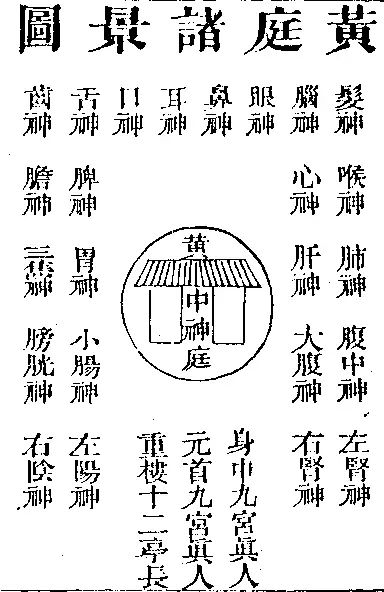 黃庭諸景圖
髮神
腦神
眼神
鼻神
耳神
口神
舌神
齒神
喉神
心神
脾神
膽神
肺神
肝神
黃中神庭
胃神
三焦神
腹中神
大腹神
小腸神
膀胱神
左腎神
右腎神
身中九宮眞人
元首九宮眞人
重樓十二亭長
左陽神
右陰神